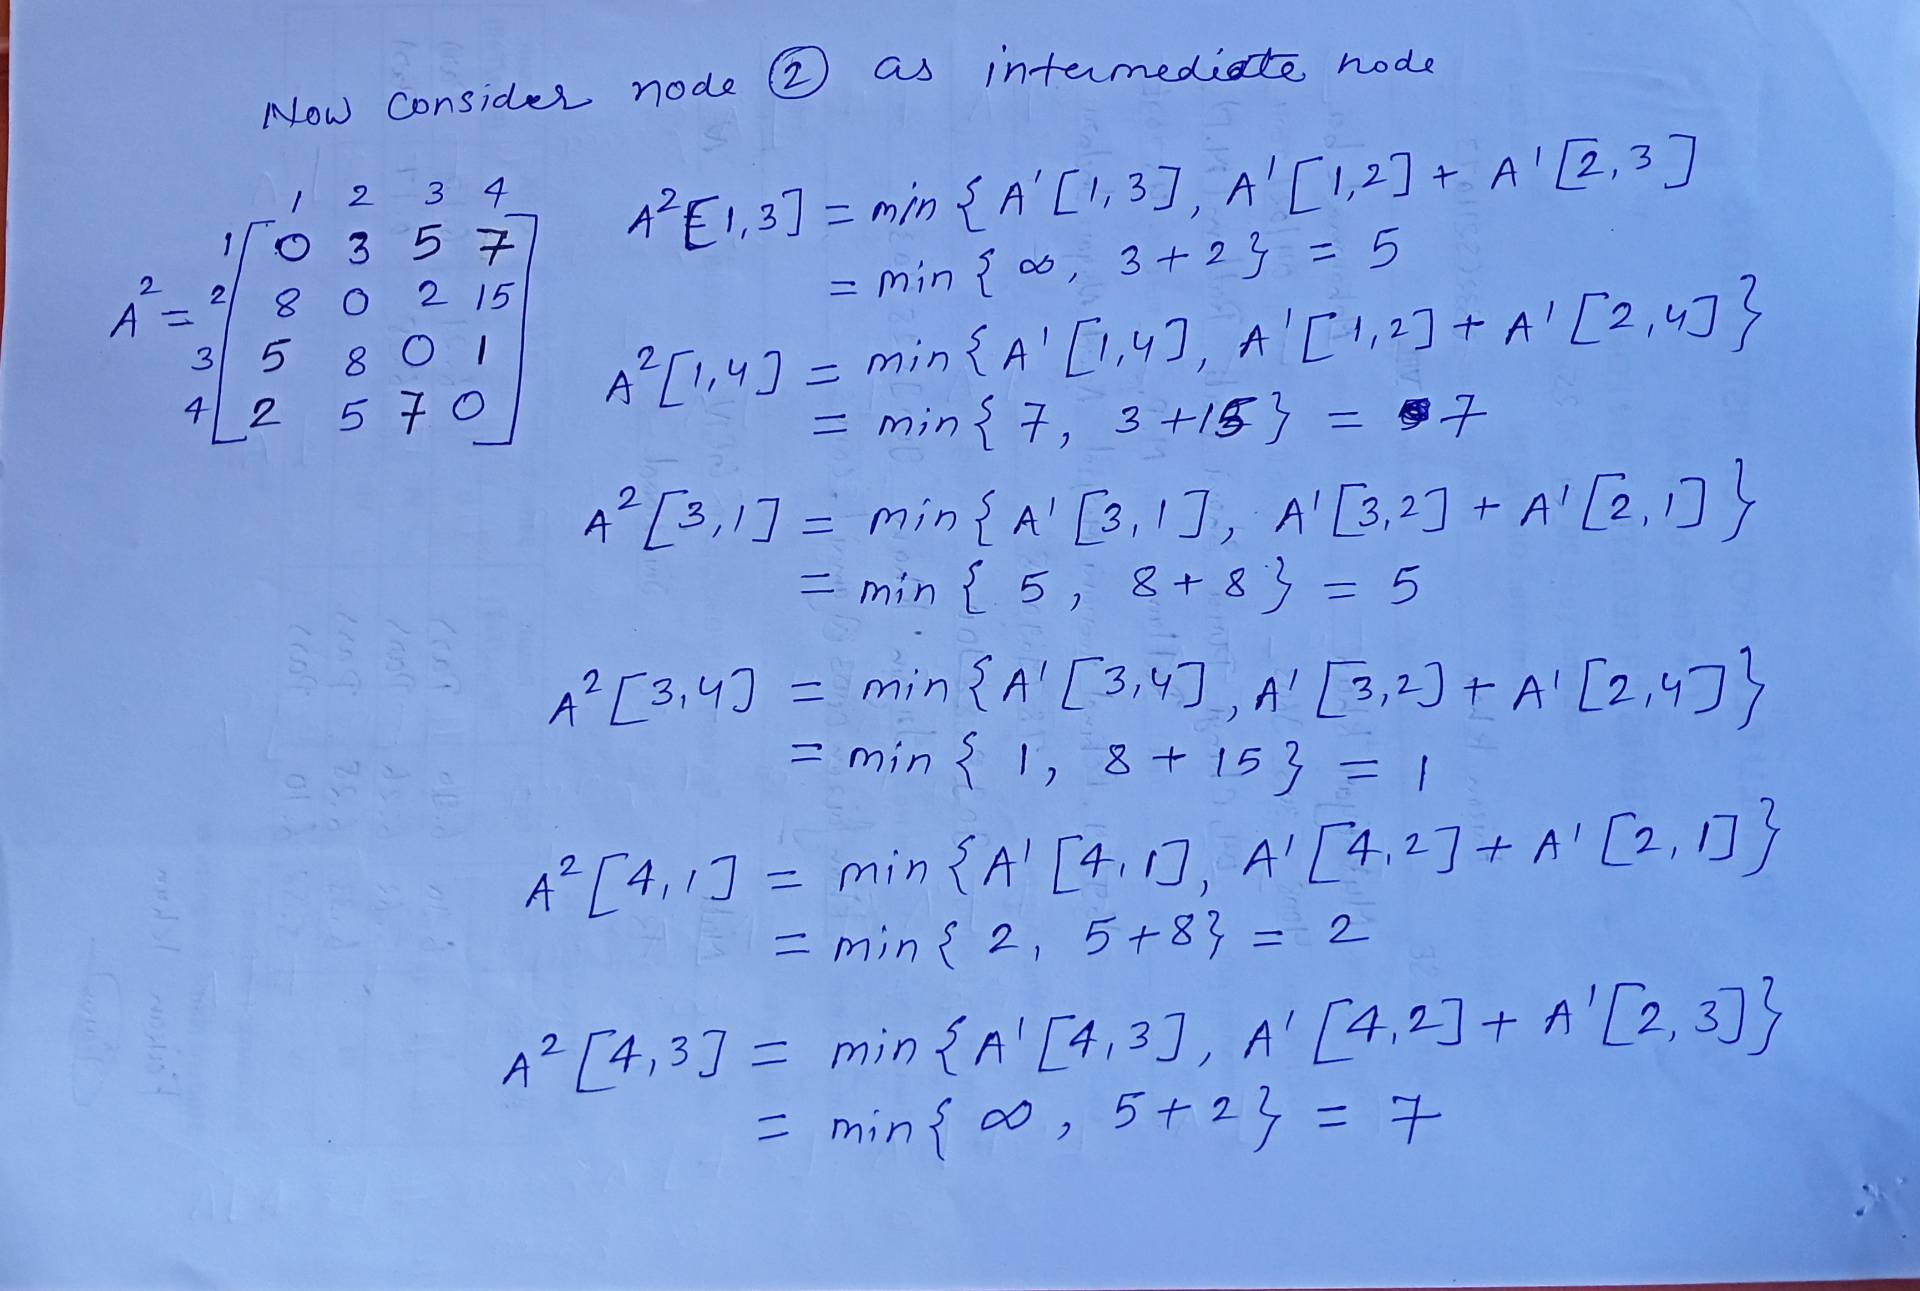 Now consider node ② as intermediate node
1 2 3 4
1 0 3 5 7
A² = 2 8 0 2 15
3 5 8 0 1
4 2 5 7 0
A²[1,3] = min { A'[1,3], A'[1,2] + A'[2,3]
= min { ∞, 3+2} = 5
A²[1,4] = min { A'[1,4], A'[1,2] + A'[2,4]}
= min { 7, 3+15} = 7
A²[3,1] = min { A'[3,1], A'[3,2] + A'[2,1]}
= min { 5, 8+8} = 5
A²[3,4] = min { A'[3,4], A'[3,2] + A'[2,4]}
= min { 1, 8+15} = 1
A²[4,1] = min { A'[4,1], A'[4,2] + A'[2,1]}
= min { 2, 5+8} = 2
A²[4,3] = min { A'[4,3], A'[4,2] + A'[2,3]}
= min { ∞, 5+2} = 7